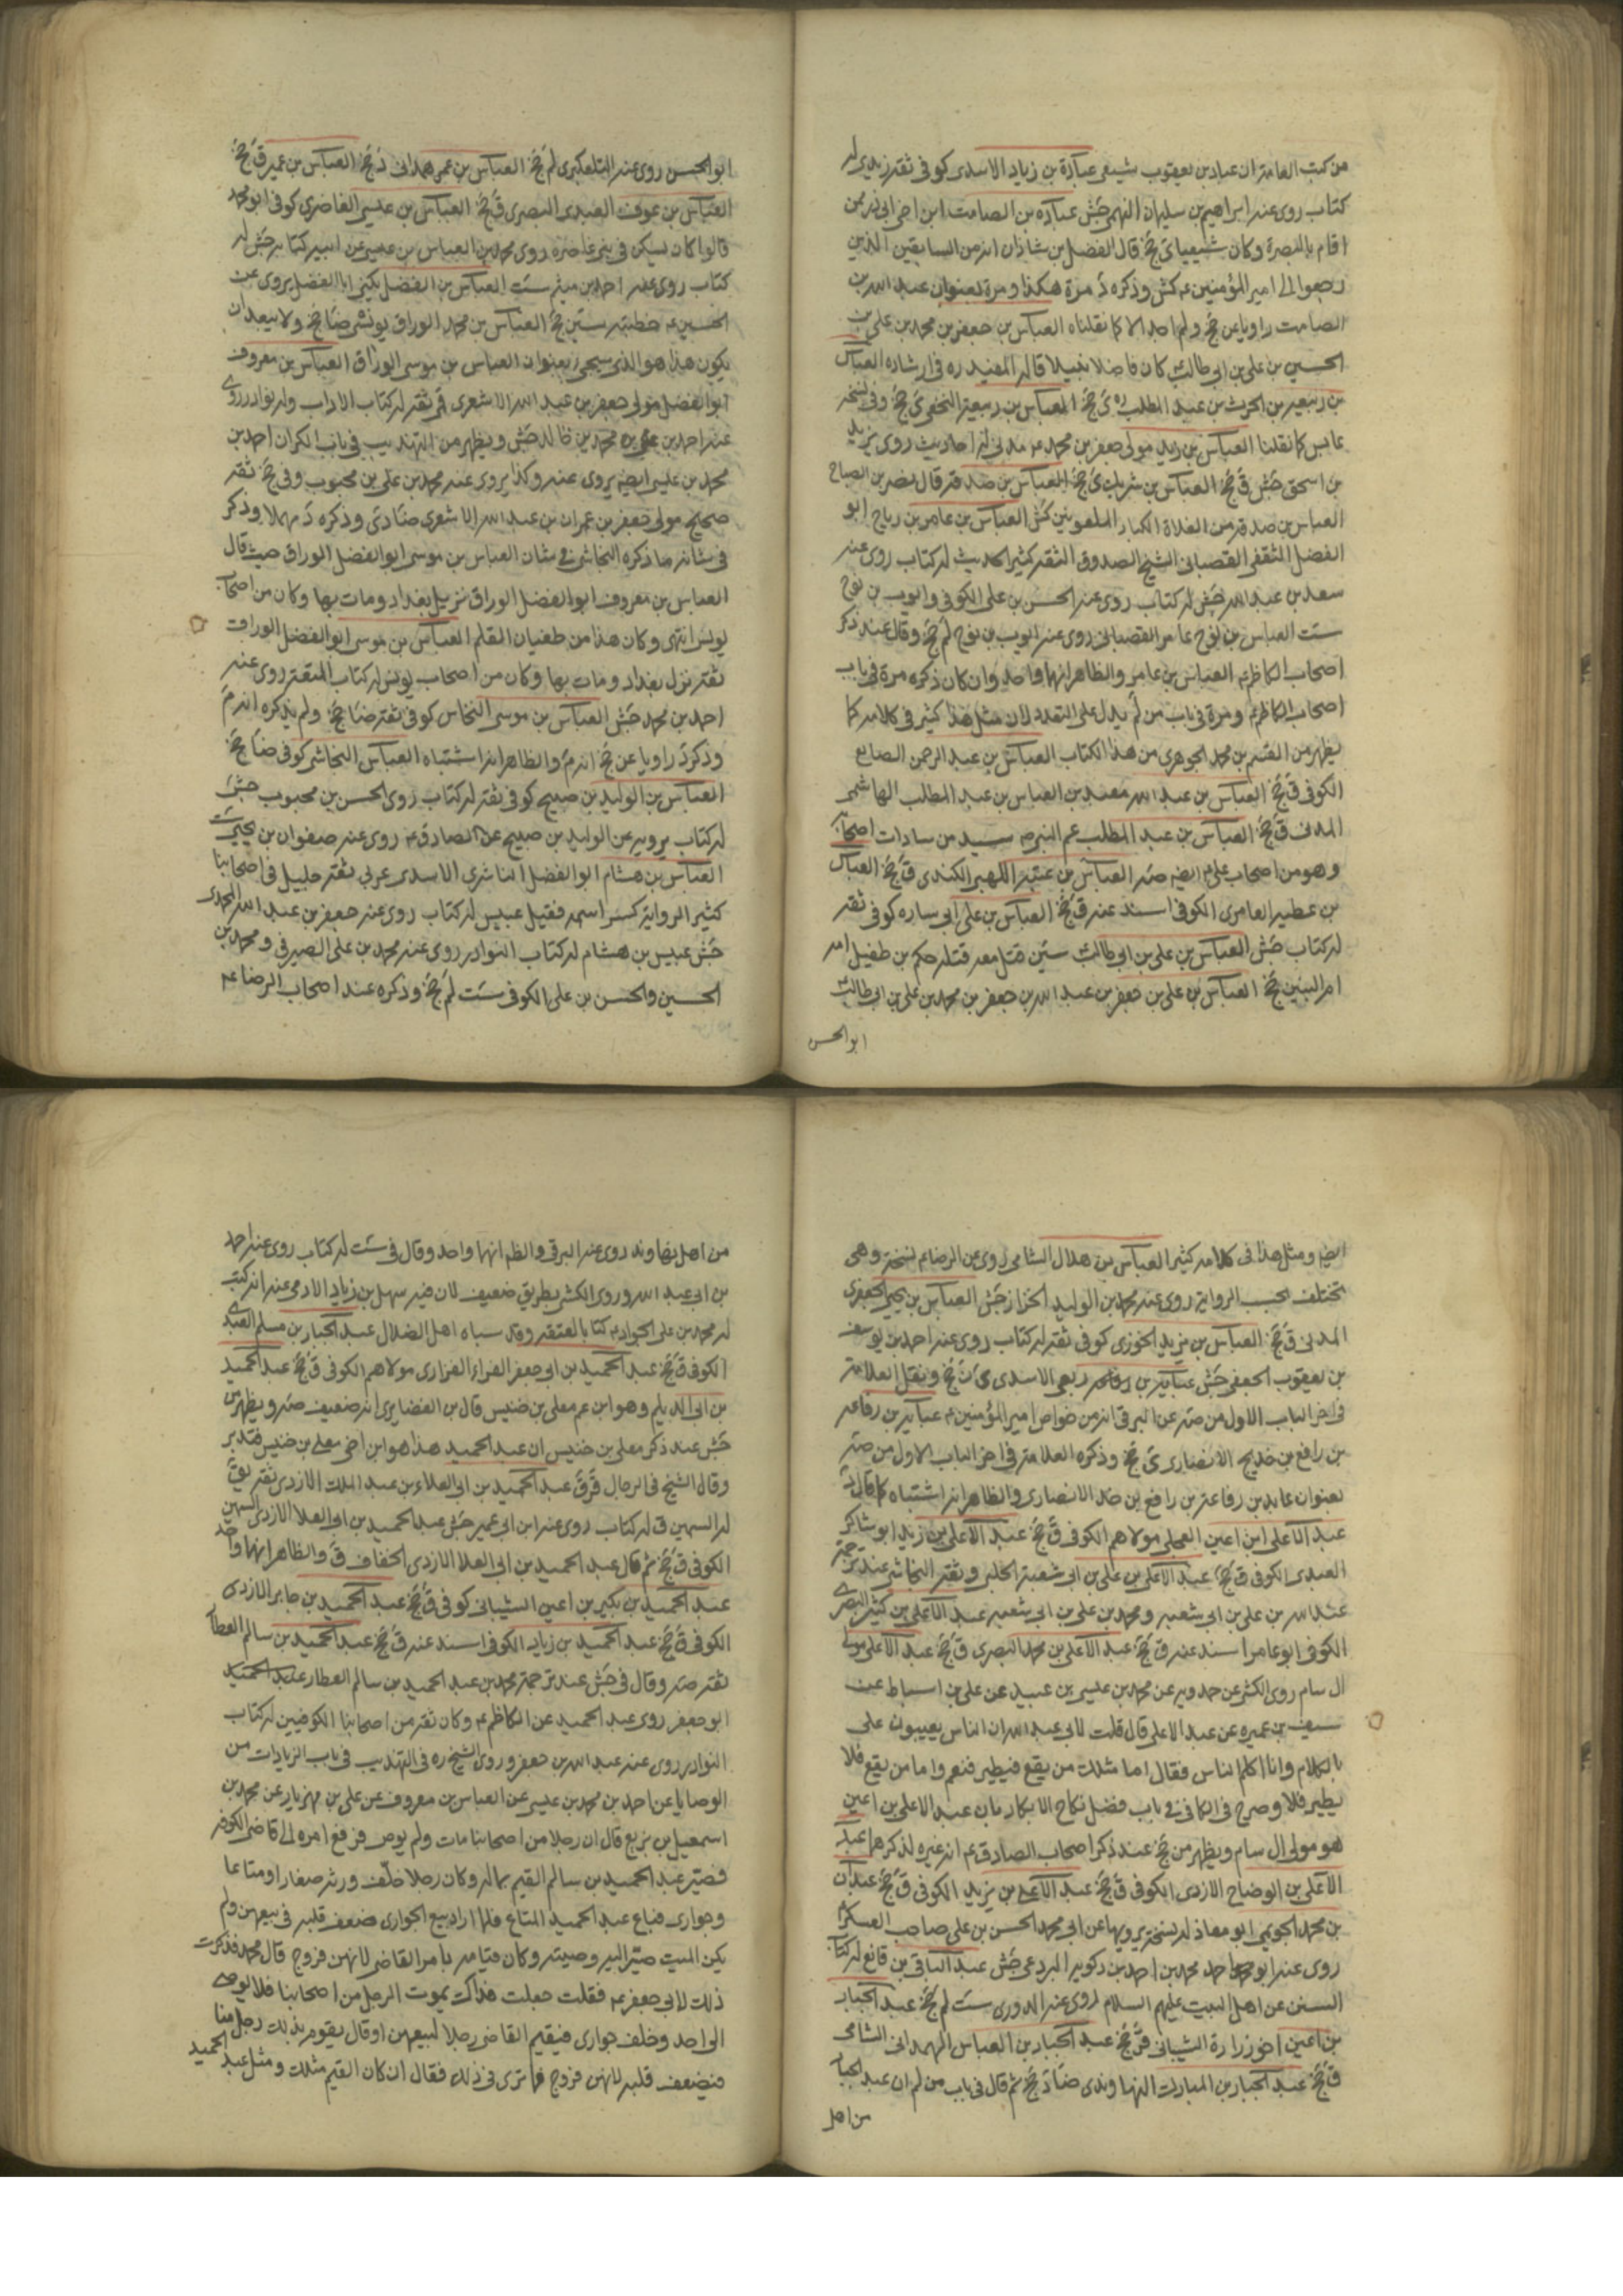 من كتب العامة ان عباد بن يعقوب شيعي عبادة بن زياد الاسدي كوفي ثقة زيدي له
كتاب روى عنه ابراهيم بن سليمان النهمي جش عبادة بن الصامت ابن اخي ابي ذر ممن
اقام بالبصرة وكان شيعيا ى جخ قال الفضل بن شاذان انه من السابقين الذين
رجعوا الى امير المؤمنين ع كش وذكره د مرة هكذا ومرة بعنوان عبد الله بن
الصامت راويا عن جخ ولم اجد الا كما نقلناه العباس بن جعفر بن محمد بن علي بن
الحسين بن علي بن ابي طالب كان فاضلا نبيلا قاله المفيد ره في ارشاده العباس
بن ربيعة بن الحرث بن عبد المطلب ره ى جخ العباس بن ربيعة النخعي ى جخ وفي نسخة
عابس كما نقلنا العباس بن زيد مولى جعفر بن محمد ع مدني له احاديث روى يزيد
بن اسحق جش ق جخ العباس بن شريك ى جخ العباس بن صدقة قال نصر بن الصباح
العباس بن صدقة من الغلاة الكبار الملعونين كش العباس بن عامر بن رباح ابو
الفضل الثقفي القصباني الشيخ الصدوق الثقة كثير الحديث له كتاب روى عنه
سعد بن عبد الله جش له كتاب روى عنه الحسن بن علي الكوفي وايوب بن نوح
ست العباس بن عامر القصباني روى عنه ايوب بن نوح لم جخ وقال عند ذكر
اصحاب الكاظم ع العباس بن عامر والظاهر انهما واحد وان كان ذكره مرة في باب
اصحاب الكاظم ع ومرة في باب من لم يدل على التعدد لان مثل هذا كثير في كلامه كما
يظهر من القسم بن محمد الجوهري من هذا الكتاب العباس بن عبد الرحمن الصايغ
الكوفي ق جخ العباس بن عبد الله معبد بن العباس بن عبد المطلب الهاشمي
المدني ق جخ العباس بن عبد المطلب عم النبي ص سيد من سادات اصحابه
وهو من اصحاب علي ع ايضا صه العباس بن عتبة اللهبي الكندي ق جخ العباس
بن عطية العامري الكوفي اسند عنه ق جخ العباس بن علي ابي سارة كوفي ثقة
له كتاب جش العباس بن علي بن ابي طالب سين قتل معه قتله حكم بن طفيل امه
ام البنين جخ العباس بن علي بن جعفر بن عبد الله بن جعفر بن محمد بن علي بن ابي طالب
ابو الحسن
ابو الحسن روى عنه التلعكبري لم جخ العباس بن عمر همداني د جخ العباس بن عمير ق جخ
العباس بن عوف العبدي البصري ق جخ العباس بن عيسى الغاضري كوفي ابو محمد
قالوا كان يسكن في بني غاضرة روى محمد بن العباس بن عيسى عن ابيه كتابه جش له
كتاب روى عنه احمد بن ميثم ست العباس بن الفضل يكنى ابا الفضل يروى عن
الحسين ع خطبته سين جخ العباس بن محمد الوراق يونسي ضا جخ ولا يبعد ان
يكون هذا هو الذي سيجيء بعنوان العباس بن موسى الوراق العباس بن معروف
ابو الفضل مولى جعفر بن عبد الله الاشعري قمي ثقة له كتاب الاداب وله نوادر روى
عنه احمد بن محمد بن خالد جش ويظهر من التهذيب في باب الكران احمد بن
محمد بن عيسى ايضا يروى عنه وكذا يروى عنه محمد بن علي بن محبوب وفي جخ ثقة
صحيح مولى جعفر بن عمران بن عبد الله الاشعري ضا دى وذكره د مهملا وذكر
في شانه ما ذكره النجاشي في شان العباس بن موسى ابو الفضل الوراق حيث قال
العباس بن معروف ابو الفضل الوراق نزيل بغداد ومات بها وكان من اصحاب
يونس انتهى وكان هذا من طغيان القلم العباس بن موسى ابو الفضل الوراق
ثقة نزل بغداد ومات بها وكان من اصحاب يونس له كتاب المتعة روى عنه
احمد بن محمد جش العباس بن موسى النخاس كوفي ثقة ضا جخ ولم يذكره انه م
وذكر د راويا عن جخ انه م والظاهر انه اشتباه العباس النجاشي كوفي ضا جخ
العباس بن الوليد بن صبيح كوفي ثقة له كتاب روى الحسن بن محبوب جش
له كتاب يرويه عن الوليد بن صبيح عن الصادق ع روى عنه صفوان بن يحيى ست
العباس بن هشام ابو الفضل الناشري الاسدي عربي ثقة جليل في اصحابنا
كثير الرواية كسر اسمه فقيل عبيس له كتاب روى عنه جعفر بن عبد الله المحمدي
جش عبيس بن هشام له كتاب النوادر روى عنه محمد بن علي الصيرفي ومحمد بن
الحسين والحسن بن علي الكوفي ست لم جخ وذكره عند اصحاب الرضا ع
ايضا ومثل هذا في كلامه كثير العباس بن هلال الشامي روى عن الرضا ع نسخة وهي
تختلف بحسب الرواية روى عنه محمد بن الوليد الخزاز جش العباس بن يحيى الجعفري
المدني ق جخ العباس بن يزيد الخوزي كوفي ثقة له كتاب روى عنه احمد بن يوسف
بن يعقوب الجعفي جش عباية بن ربعي الاسدي ى ن جخ ونقل العلامة
في اخر الباب الاول من صه عن البرقي انه من خواص امير المؤمنين ع عباية بن رفاعة
بن رافع بن خديج الانصاري ى جخ وذكره العلامة في اخر الباب الاول من صه
بعنوان عابد بن رفاعة بن رافع بن خد الانصاري والظاهر انه اشتباه كما قال د
عبد الاعلى ابن اعين العجلي مولاهم الكوفي ق جخ عبد الاعلى بن زيد ابو شاكر
العبدي الكوفي ق جخ عبد الاعلى بن علي بن ابي شعبة الحلبي وثقه النجاشي عند ترجمة
عبد الله بن علي بن ابي شعبة ومحمد بن علي بن ابي شعبة عبد الاعلى بن كثير البصري
الكوفي ابو عامر اسند عنه ق جخ عبد الاعلى بن محمد البصري ق جخ عبد الاعلى مولى
ال سام روى الكشي عن حمدويه عن محمد بن عيسى بن عبيد عن علي بن اسباط عن
سيف بن عميرة عن عبد الاعلى قال قلت لابي عبد الله ان الناس يعيبون علي
بالكلام وانا اكلم الناس فقال اما مثلك من يقع فيطير فنعم واما من يقع فلا
يطير فلا وصرح في الكافي في باب فضل نكاح الابكار بان عبد الاعلى بن اعين
هو مولى ال سام ويظهر من جخ عند ذكر اصحاب الصادق ع انه غيره لذكرهما عبد
الاعلى بن الوضاح الازدي الكوفي ق جخ عبد الاعلى بن يزيد الكوفي ق جخ عبدان
بن محمد الجويمي ابو معاذ له نسخة يرويها عن ابي محمد الحسن بن علي صاحب العسكر
روى عنه ابو احمد محمد بن احمد بن دكوير البردعي جش عبد الباقي بن قانع له كتاب
السنن عن اهل البيت عليهم السلام روى عنه الدوري ست لم جخ عبد الجبار
بن اعين اخو زرارة الشيباني قر جخ عبد الجبار بن العباس الهمداني الشامي
ق جخ عبد الجبار بن المبارك النهاوندي ضا د جخ ثم قال في باب من لم ان عبد الجبار
من اهل
من اهل نهاوند روى عنه البرقي والظ انهما واحد وقال في ست له كتاب روى عنه احمد
بن ابي عبد الله وروى الكشي بطريق ضعيف لان فيه سهل بن زياد الادمي عنه انه كتب
له محمد بن علي الجواد ع كتابا بالعتقه وقد سباه اهل الضلال عبد الجبار بن مسلم العبدي
الكوفي ق جخ عبد الحميد بن ابي جعفر الفراء الفزاري مولاهم الكوفي ق جخ عبد الحميد
بن ابي الديلم وهو ابن عم معلى بن خنيس قال بن الغضايري انه ضعيف صه ويظهر من
جش عند ذكر معلى بن خنيس ان عبد الحميد هذا هو ابن اخي معلى بن خنيس فتدبر
وقال الشيخ في الرجال قر ق عبد الحميد بن ابي العلاء بن عبد الملك الازدي ثقة يق
له السمين ق له كتاب روى عنه ابن ابي عمير جش عبد الحميد بن ابي العلا الازدي السمين
الكوفي ق جخ ثم قال عبد الحميد بن ابي العلا الازدي الخفاف ق والظاهر انهما واحد
عبد الحميد بن بكير بن اعين الشيباني كوفي ق جخ عبد الحميد بن جابر الازدي
الكوفي ق جخ عبد الحميد بن زياد الكوفي اسند عنه ق جخ عبد الحميد بن سالم العطار
ثقة صه وقال في جش عند ترجمة محمد بن عبد الحميد بن سالم العطار عبد الحميد
ابو جعفر روى عبد الحميد عن الكاظم ع وكان ثقة من اصحابنا الكوفيين له كتاب
النوادر روى عنه عبد الله بن جعفر وروى الشيخ ره في التهذيب في باب الزيادات من
الوصايا عن احمد بن محمد بن عيسى عن العباس بن معروف عن علي بن مهزيار عن محمد بن
اسمعيل بن بزيع قال ان رجلا من اصحابنا مات ولم يوص فرفع امره الى قاضي الكوفة
فصير عبد الحميد بن سالم القيم بماله وكان رجلا خلف ورثة صغارا ومتاعا
وجواري فباع عبد الحميد المتاع فلما اراد بيع الجواري ضعف قلبه في بيعهن ولم
يكن الميت صير اليه وصيته وكان قيامه بامر القاضي لانهن فروج قال محمد فذكرت
ذلك لابي جعفر ع فقلت جعلت فداك يموت الرجل من اصحابنا فلا يوصى
الى احد وخلف جواري فيقيم القاضي رجلا لبيعهن او قال يقوم بذلك رجل منا
فيضعف قلبه لانهن فروج فما ترى في ذلك فقال ان كان القيم مثلك ومثل عبد الحميد